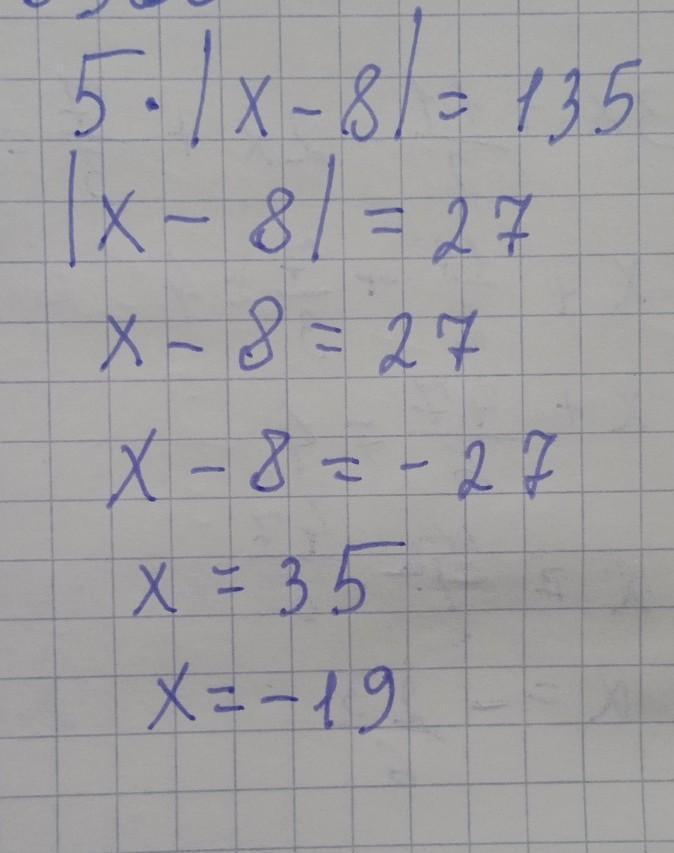 5·|x-8|=135
|x-8|=27
x-8=27
x-8=-27
x=35
x=-19